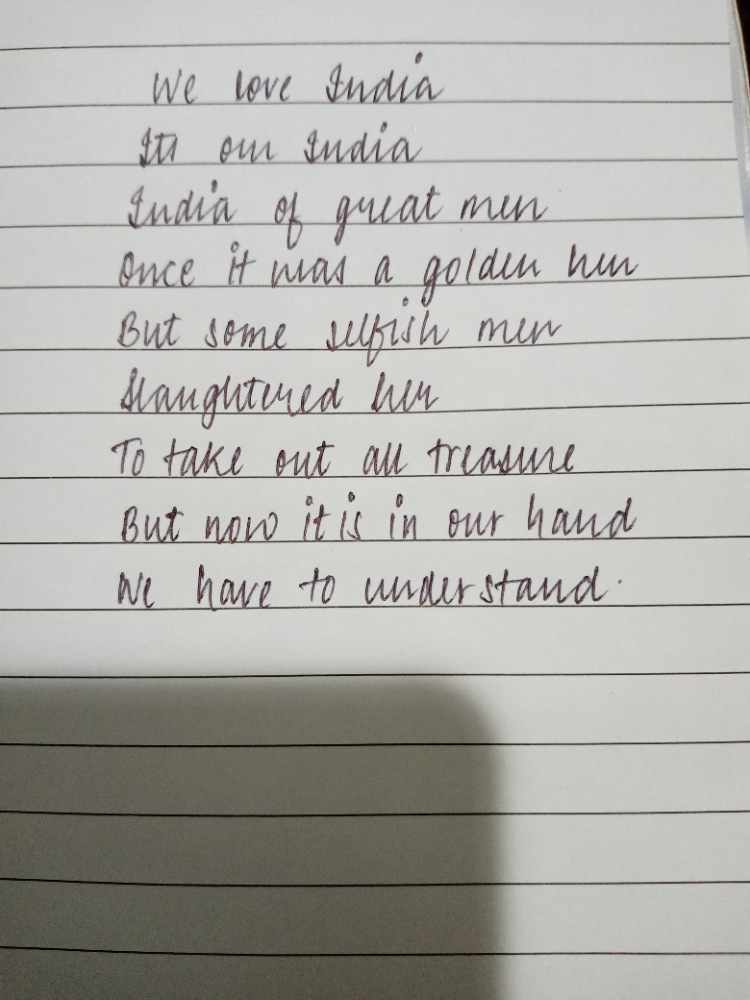 We love India
Its our India
India of great men
Once it was a golden hen
But some selfish men
Slaughtered her
To take out all treasure
But now it is in our hand
We have to understand.